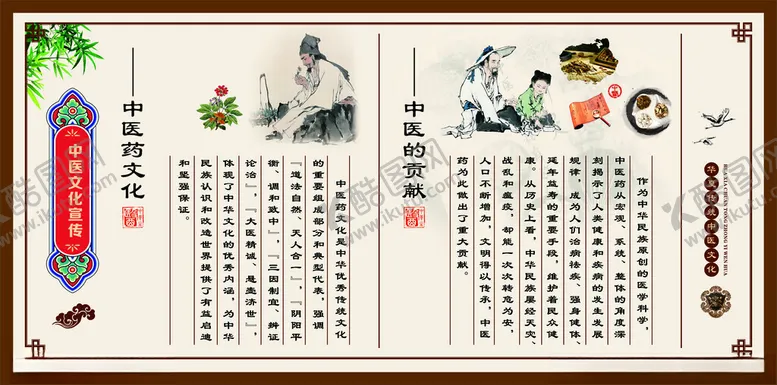 中医文化宣传
中医药文化
中医药文化是中华优秀传统文化
的重要组成部分和典型代表，强调
『道法自然、天人合一』，『阴阳平
衡，调和致中』，『三因制宜、辨证
论治』，『大医精诚、悬壶济世』，
体现了中华文化的优秀内涵，为中华
民族认识和改造世界提供了有益启迪
和坚强保证。
中医的贡献
作为中华民族原创的医学科学，
中医药从宏观、系统、整体的角度深
刻揭示了人类健康和疾病的发生发展
规律，成为人们治病祛疾、强身健体、
延年益寿的重要手段，维护着民众健
康。从历史上看，中华民族屡经天灾、
战乱和瘟疫，却能一次次转危为安，
人口不断增加，文明得以传承，中医
药为此做出了重大贡献。
华夏传统中医文化
HUA XIA CHUAN TONG ZHONG YI WEN HUA